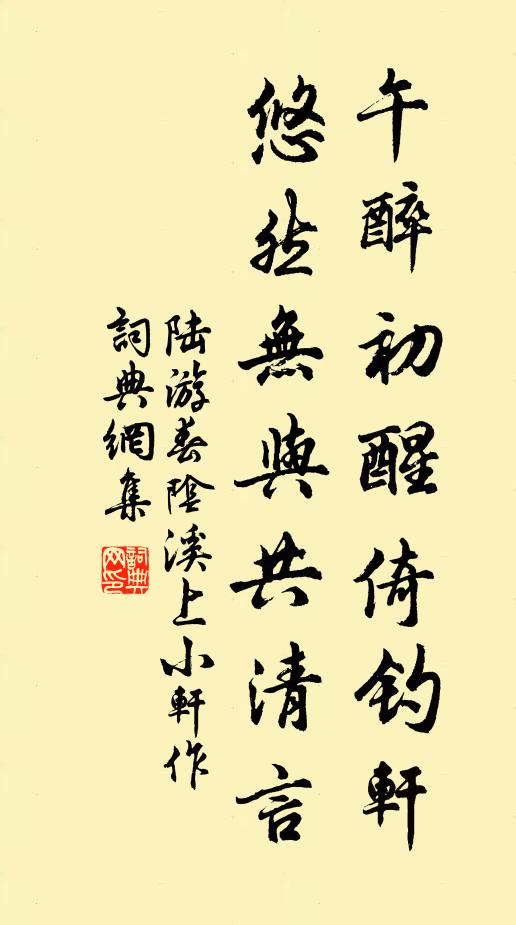 午醉初醒倚钓軒
悠然無與共清言
陆游春陰溪上小軒作
詞典網集
詞典网印